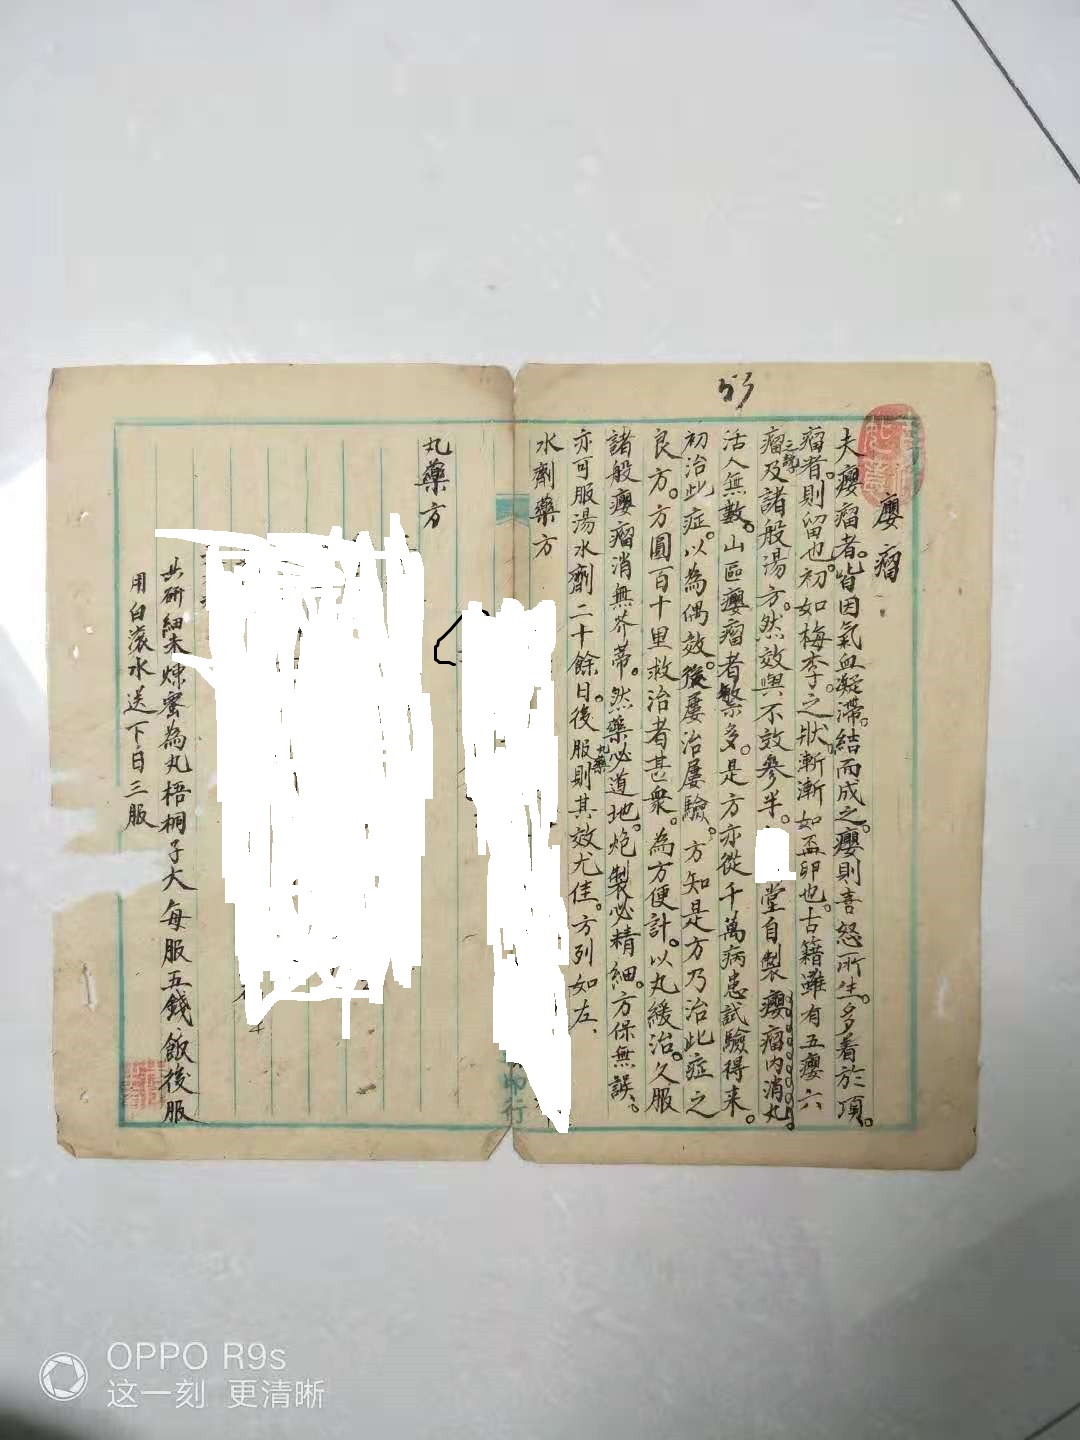 癭瘤
夫癭瘤者。皆因氣血凝滯。結而成之。癭則喜怒所生。多着於項。
瘤者。則留也。初如梅李之狀。漸漸如盃卵也。古籍雖有五癭六
瘤及諸般湯方。然效與不效參半。堂自製癭瘤內消丸
活人無數。山區癭瘤者繁多。是方亦從千萬病患試驗得来。
初治此症。以為偶效。後屢治屢驗。方知是方乃治此症之
良方。方圓百十里救治者甚衆。為方便計。以丸緩治。久服
諸般癭瘤消無芥蒂。然藥必道地。炮製必精細。方保無誤、
亦可服湯水劑二十餘日。後服丸藥則其效尤佳。方列如左、
水劑藥方
丸藥方
共研細末煉蜜為丸梧桐子大每服五錢飯後服
用白滾水送下日三服
印行
OPPO R9s
这一刻 更清晰